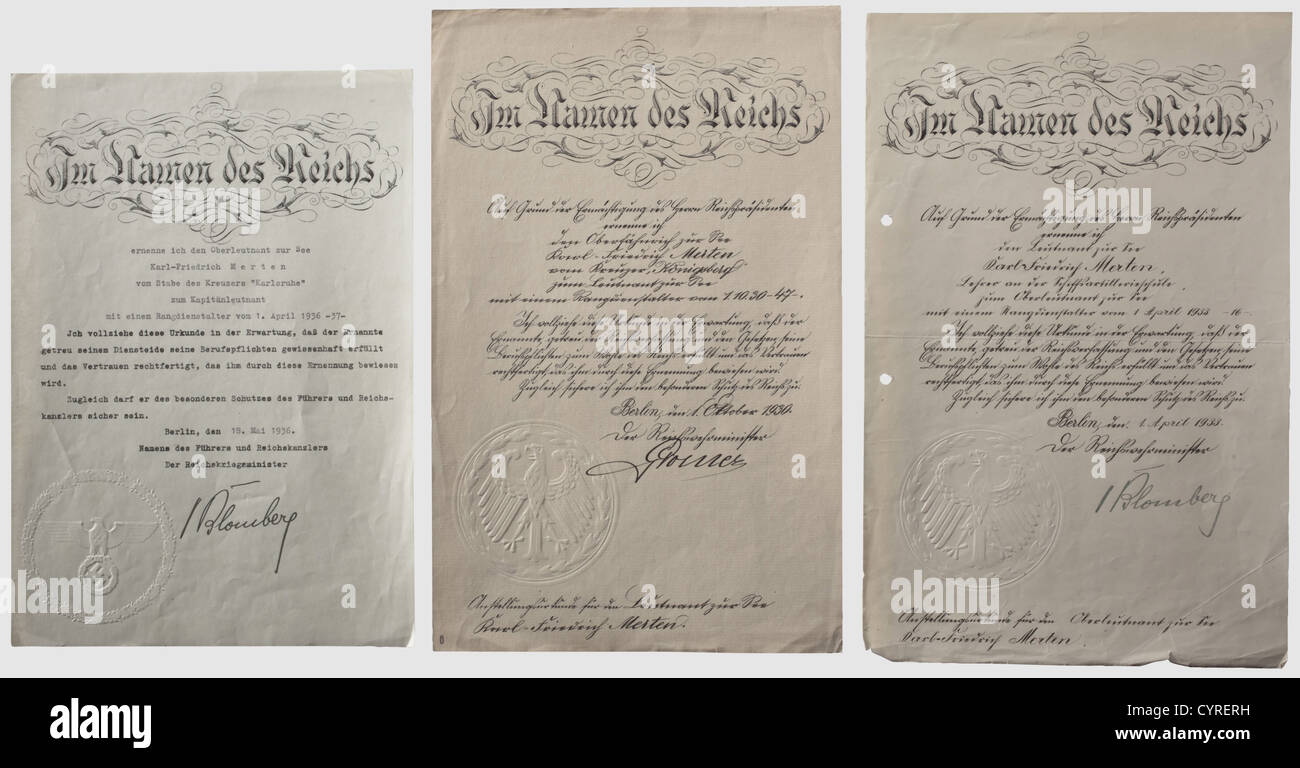 Im Namen des Reichs
ernenne ich den Oberleutnant zur See
Karl-Friedrich Merten
vom Stabe des Kreuzers "Karlsruhe"
zum Kapitänleutnant
mit einem Rangdienstalter vom 1. April 1936 -37-
Ich vollziehe diese Urkunde in der Erwartung, daß der Ernannte
getreu seinem Diensteide seine Berufspflichten gewissenhaft erfüllt
und das Vertrauen rechtfertigt, das ihm durch diese Ernennung bewiesen
wird.
Zugleich darf er des besonderen Schutzes des Führers und Reichs-
kanzlers sicher sein.
Berlin, den 18. Mai 1936.
Namens des Führers und Reichskanzlers
Der Reichskriegsminister
Blomberg
Im Namen des Reichs
Auf Grund der Ermächtigung des Herrn Reichspräsidenten
ernenne ich
den Oberfähnrich zur See
Karl-Friedrich Merten
vom Kreuzer „Königsberg"
zum Leutnant zur See
mit einem Rangdienstalter vom 1.10.30 -47-.
Ich vollziehe diese Urkunde in der Erwartung, daß der
Ernannte getreu der Reichsverfassung und den Gesetzen seine
Berufspflichten zum Wohle des Reichs erfüllt und das Vertrauen
rechtfertigt, das ihm durch diese Ernennung bewiesen wird.
Zugleich sichere ich ihm den besonderen Schutz des Reichs zu.
Berlin, den 1. Oktober 1930.
Der Reichswehrminister
Groener
Anstellungsurkunde für den Leutnant zur See
Karl-Friedrich Merten.
Im Namen des Reichs
Auf Grund der Ermächtigung des Herrn Reichspräsidenten
ernenne ich
den Leutnant zur See
Karl-Friedrich Merten,
Lehrer an der Schiffsartillerieschule,
zum Oberleutnant zur See
mit einem Rangdienstalter vom 1. April 1933 -16-.
Ich vollziehe diese Urkunde in der Erwartung, daß der
Ernannte getreu der Reichsverfassung und den Gesetzen seine
Berufspflichten zum Wohle des Reichs erfüllt und das Vertrauen
rechtfertigt, das ihm durch diese Ernennung bewiesen wird.
Zugleich sichere ich ihm den besonderen Schutz des Reichs zu.
Berlin, den 1. April 1933.
Der Reichswehrminister
Blomberg
Anstellungsurkunde für den Oberleutnant zur See
Karl-Friedrich Merten.
alamy
Image ID: CYRERH
www.alamy.com